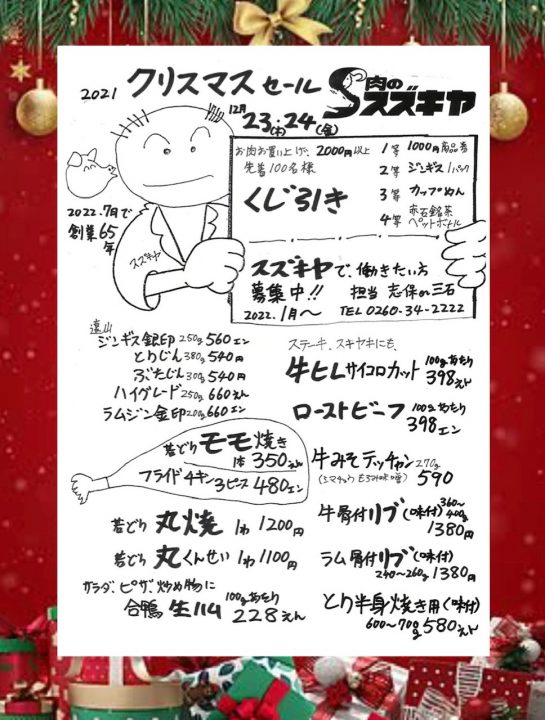 2021 クリスマス セール
肉の
スズキヤ
12月
23(木)・24(金)
お肉お買い上げ、2000円以上
先着100名様
くじ引き
1等 1000円商品券
2等 ジンギス1パック
3等 カップめん
4等 赤石銘茶
ペットボトル
2022.7月で
創業65
年
スズキヤ
スズキヤで、働きたい方
募集中!! 担当 志保の三石
2022.1月〜 TEL 0260-34-2222
遠山
ジンギス銀印 250g 560エン
とりじん 380g 540円
ぶたじん 300g 540円
ハイグレード 250g 660えん
ラムジン金印 200g 660エン
ステーキ、スキヤキにも、
牛ヒレサイコロカット 100gあたり
398えん
ローストビーフ 100gあたり
398エン
若どり モモ焼き
1本 350えん
フライドチキン3ピース 480エン
牛みそテッチャン 270g
590
若どり 丸焼 1わ 1200円
若どり 丸くんせい 1わ 1100円
サラダ、ピザ、炒め物に
合鴨 生ハム 100gあたり
228えん
牛骨付リブ(味付) 360〜
400g
1380円
ラム骨付リブ(味付)
240〜260g 1380円
とり半身焼き用(味付)
600〜700g 580えん